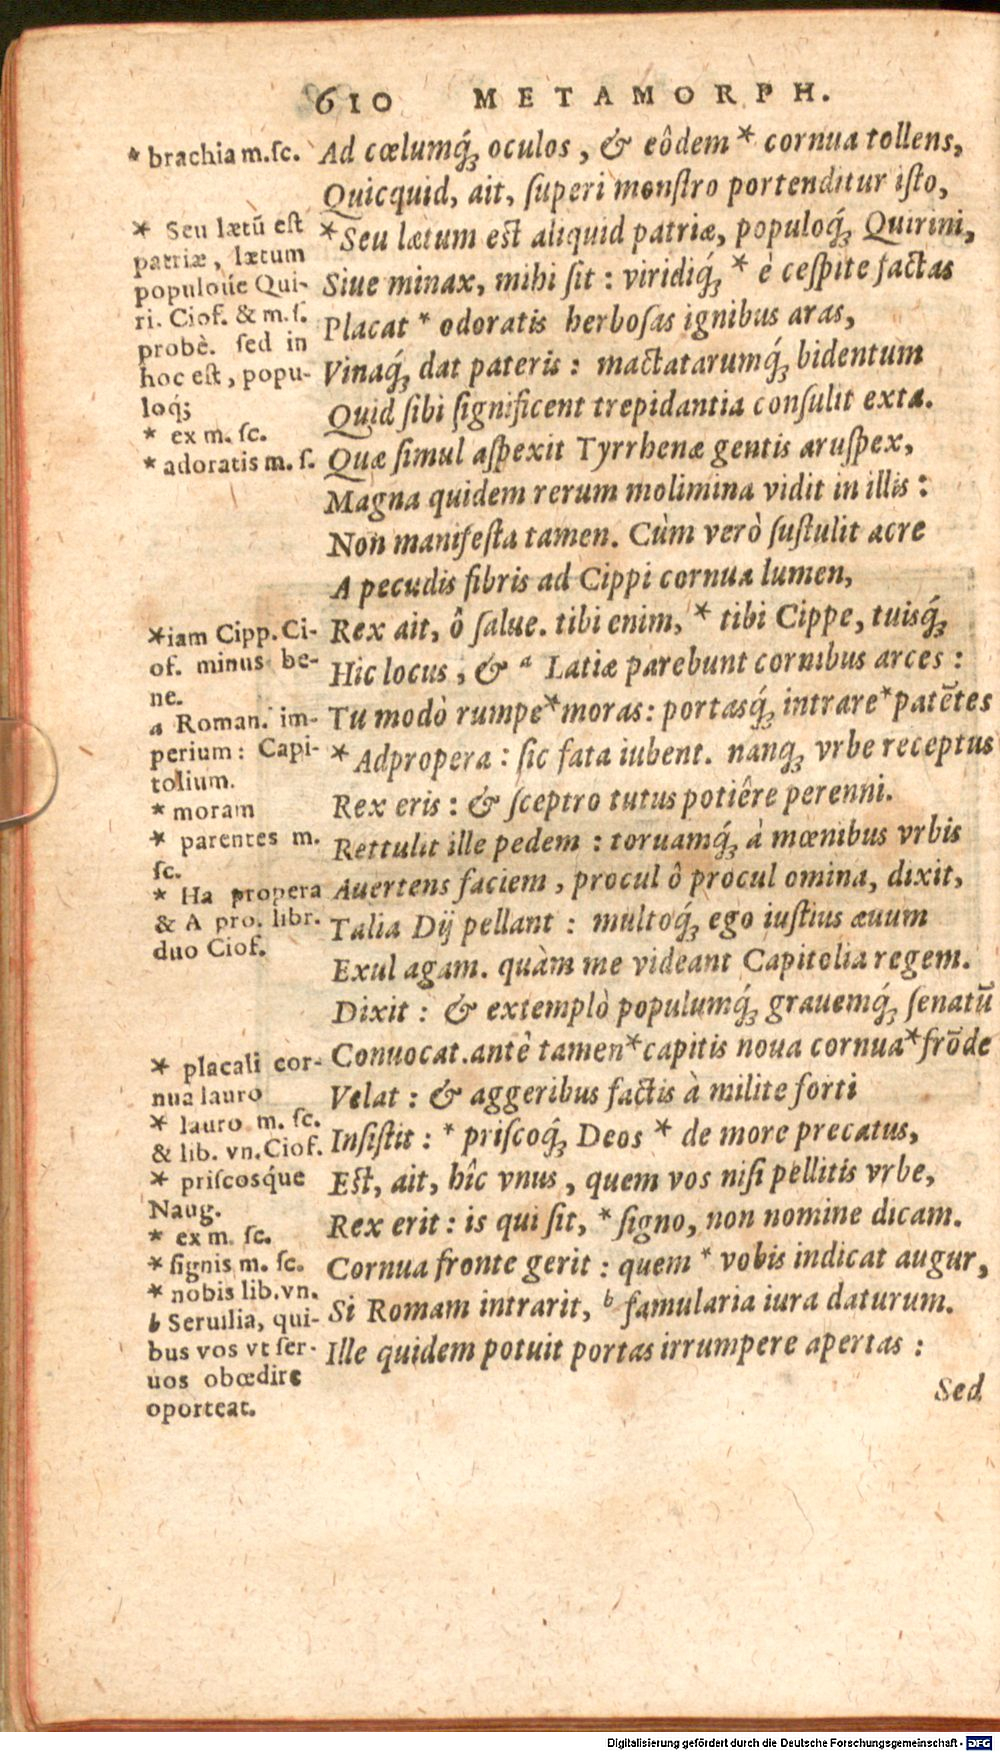 610 METAMORPH.
* brachia m.ſc.
* Seu lætū eſt
patriæ, lætum
populoúe Qui-
ri. Ciof. & m.ſ.
probè. ſed in
hoc eſt, popu-
loq́;
* ex m. ſc.
* adoratis m. ſ.
*iam Cipp. Ci-
of. minus be-
ne.
a Roman. im-
perium: Capi-
tolium.
* moram
* parentes m.
ſc.
* Ha propera
& A pro. libr.
duo Ciof.
* placali cor-
nua lauro
* lauro m. ſc.
& lib. vn. Ciof.
* priſcosq́ue
Naug.
* ex m. ſc.
* ſignis m. ſc.
* nobis lib.vn.
b Seruilia, qui-
bus vos vt ſer-
uos obœdire
oporteat.
Ad cœlumq́; oculos, & eôdem * cornua tollens,
Quicquid, ait, ſuperi monſtro portenditur iſto,
*Seu lætum eſt aliquid patriæ, populoq́; Quirini,
Siue minax, mihi ſit: viridiq́; * è ceſpite factas
Placat * odoratis herboſas ignibus aras,
Vinaq́; dat pateris: mactatarumq́; bidentum
Quid ſibi ſignificent trepidantia conſulit exta.
Quæ ſimul aſpexit Tyrrhenæ gentis aruſpex,
Magna quidem rerum molimina vidit in illis:
Non manifeſta tamen. Cùm verò ſuſtulit acre
A pecudis fibris ad Cippi cornua lumen,
Rex ait, ô ſalue. tibi enim, * tibi Cippe, tuisq́;
Hic locus, & a Latiæ parebunt cornibus arces:
Tu modò rumpe*moras: portasq́; intrare*patētes
* Adpropera: ſic fata iubent. nanq; vrbe receptus
Rex eris: & ſceptro tutus potiêre perenni.
Rettulit ille pedem: toruamq́; à mœnibus vrbis
Auertens faciem, procul ô procul omina, dixit,
Talia Dij pellant: multoq́; ego iuſtius æuum
Exul agam. quàm me videant Capitolia regem.
Dixit: & extemplò populumq́; grauemq́; ſenatū
Conuocat. antè tamen*capitis noua cornua*frōde
Velat: & aggeribus factis à milite forti
Inſiſtit: * priſcoq́; Deos * de more precatus,
Eſt, ait, hîc vnus, quem vos niſi pellitis vrbe,
Rex erit: is qui ſit, * ſigno, non nomine dicam.
Cornua fronte gerit: quem * vobis indicat augur,
Si Romam intrarit, b famularia iura daturum.
Ille quidem potuit portas irrumpere apertas:
Sed
Digitalisierung gefördert durch die Deutsche Forschungsgemeinschaft - DFG